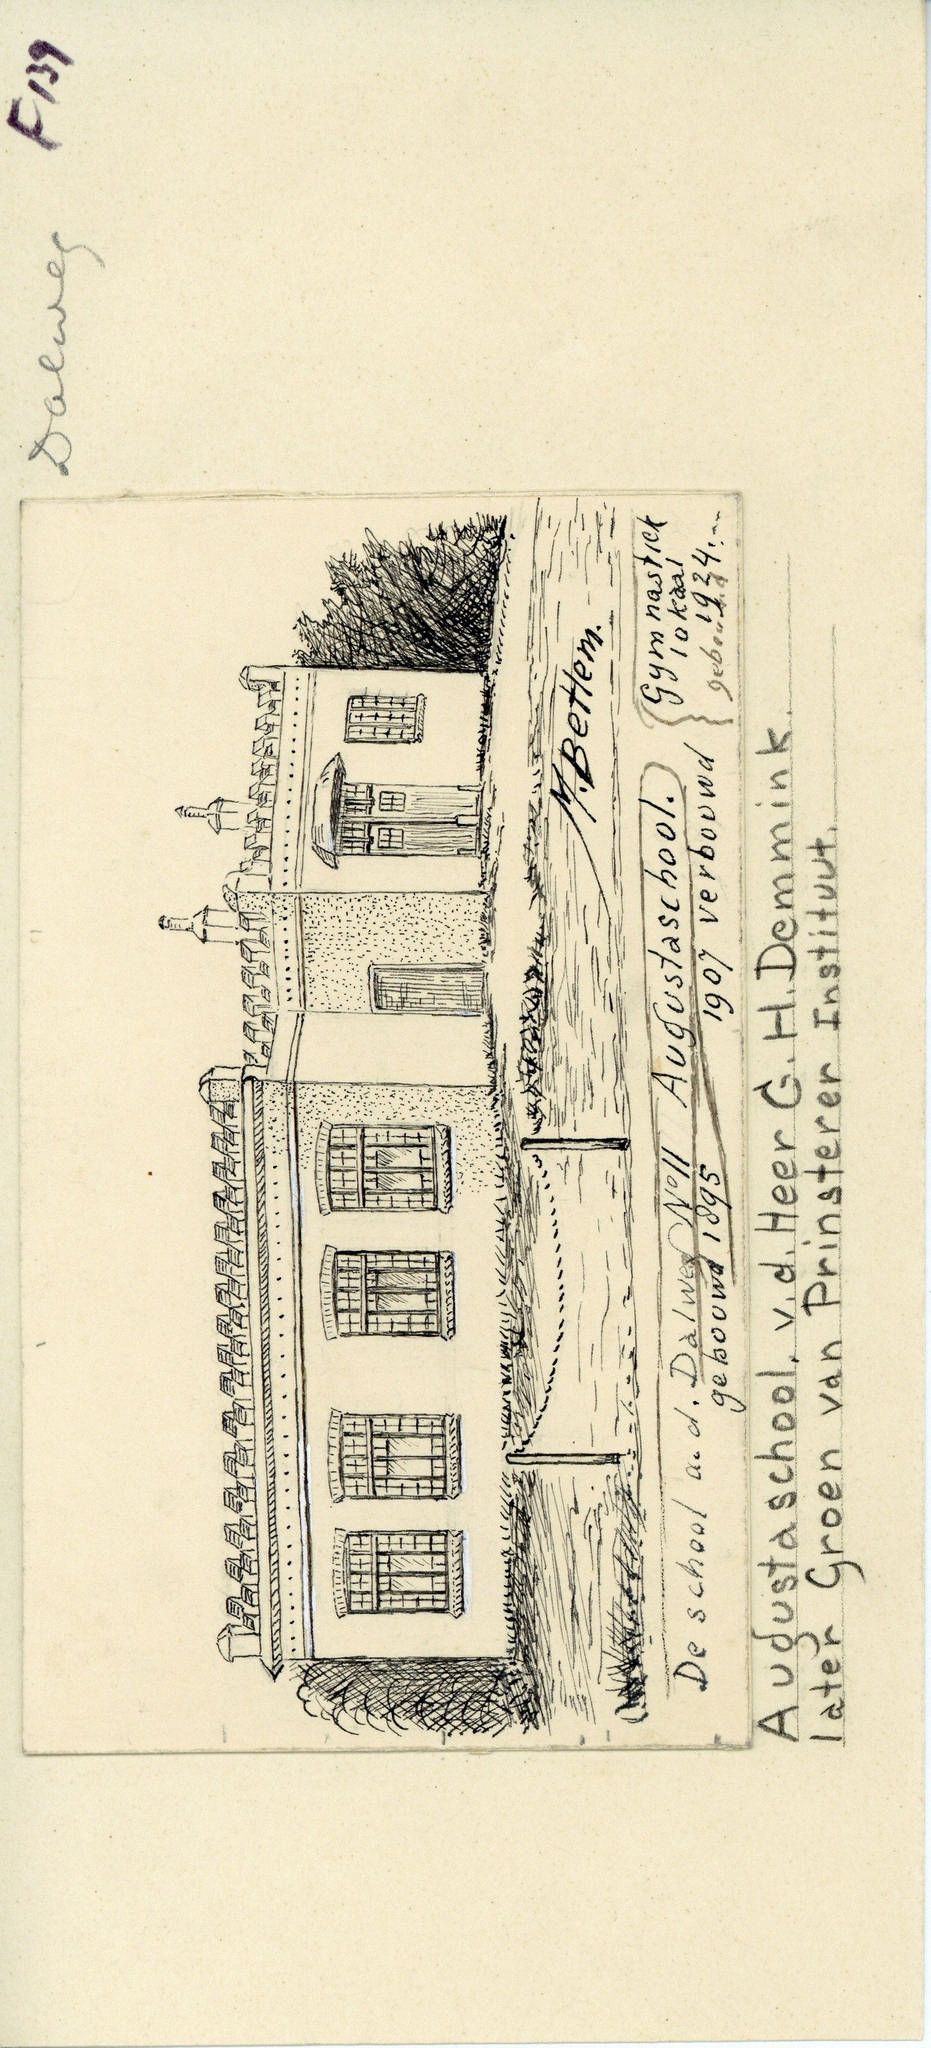 F 139
Dalweg
M. Bettem.
De school a.d. Dalweg No 11 Augustaschool.
gebouwd 1895 1907 verbouwd
Gymnastick
lokaal
1924.
gebouwd
Augustaschool, v.d. Heer G.H. Demmink.
later Groen van Prinsterer Instituut.